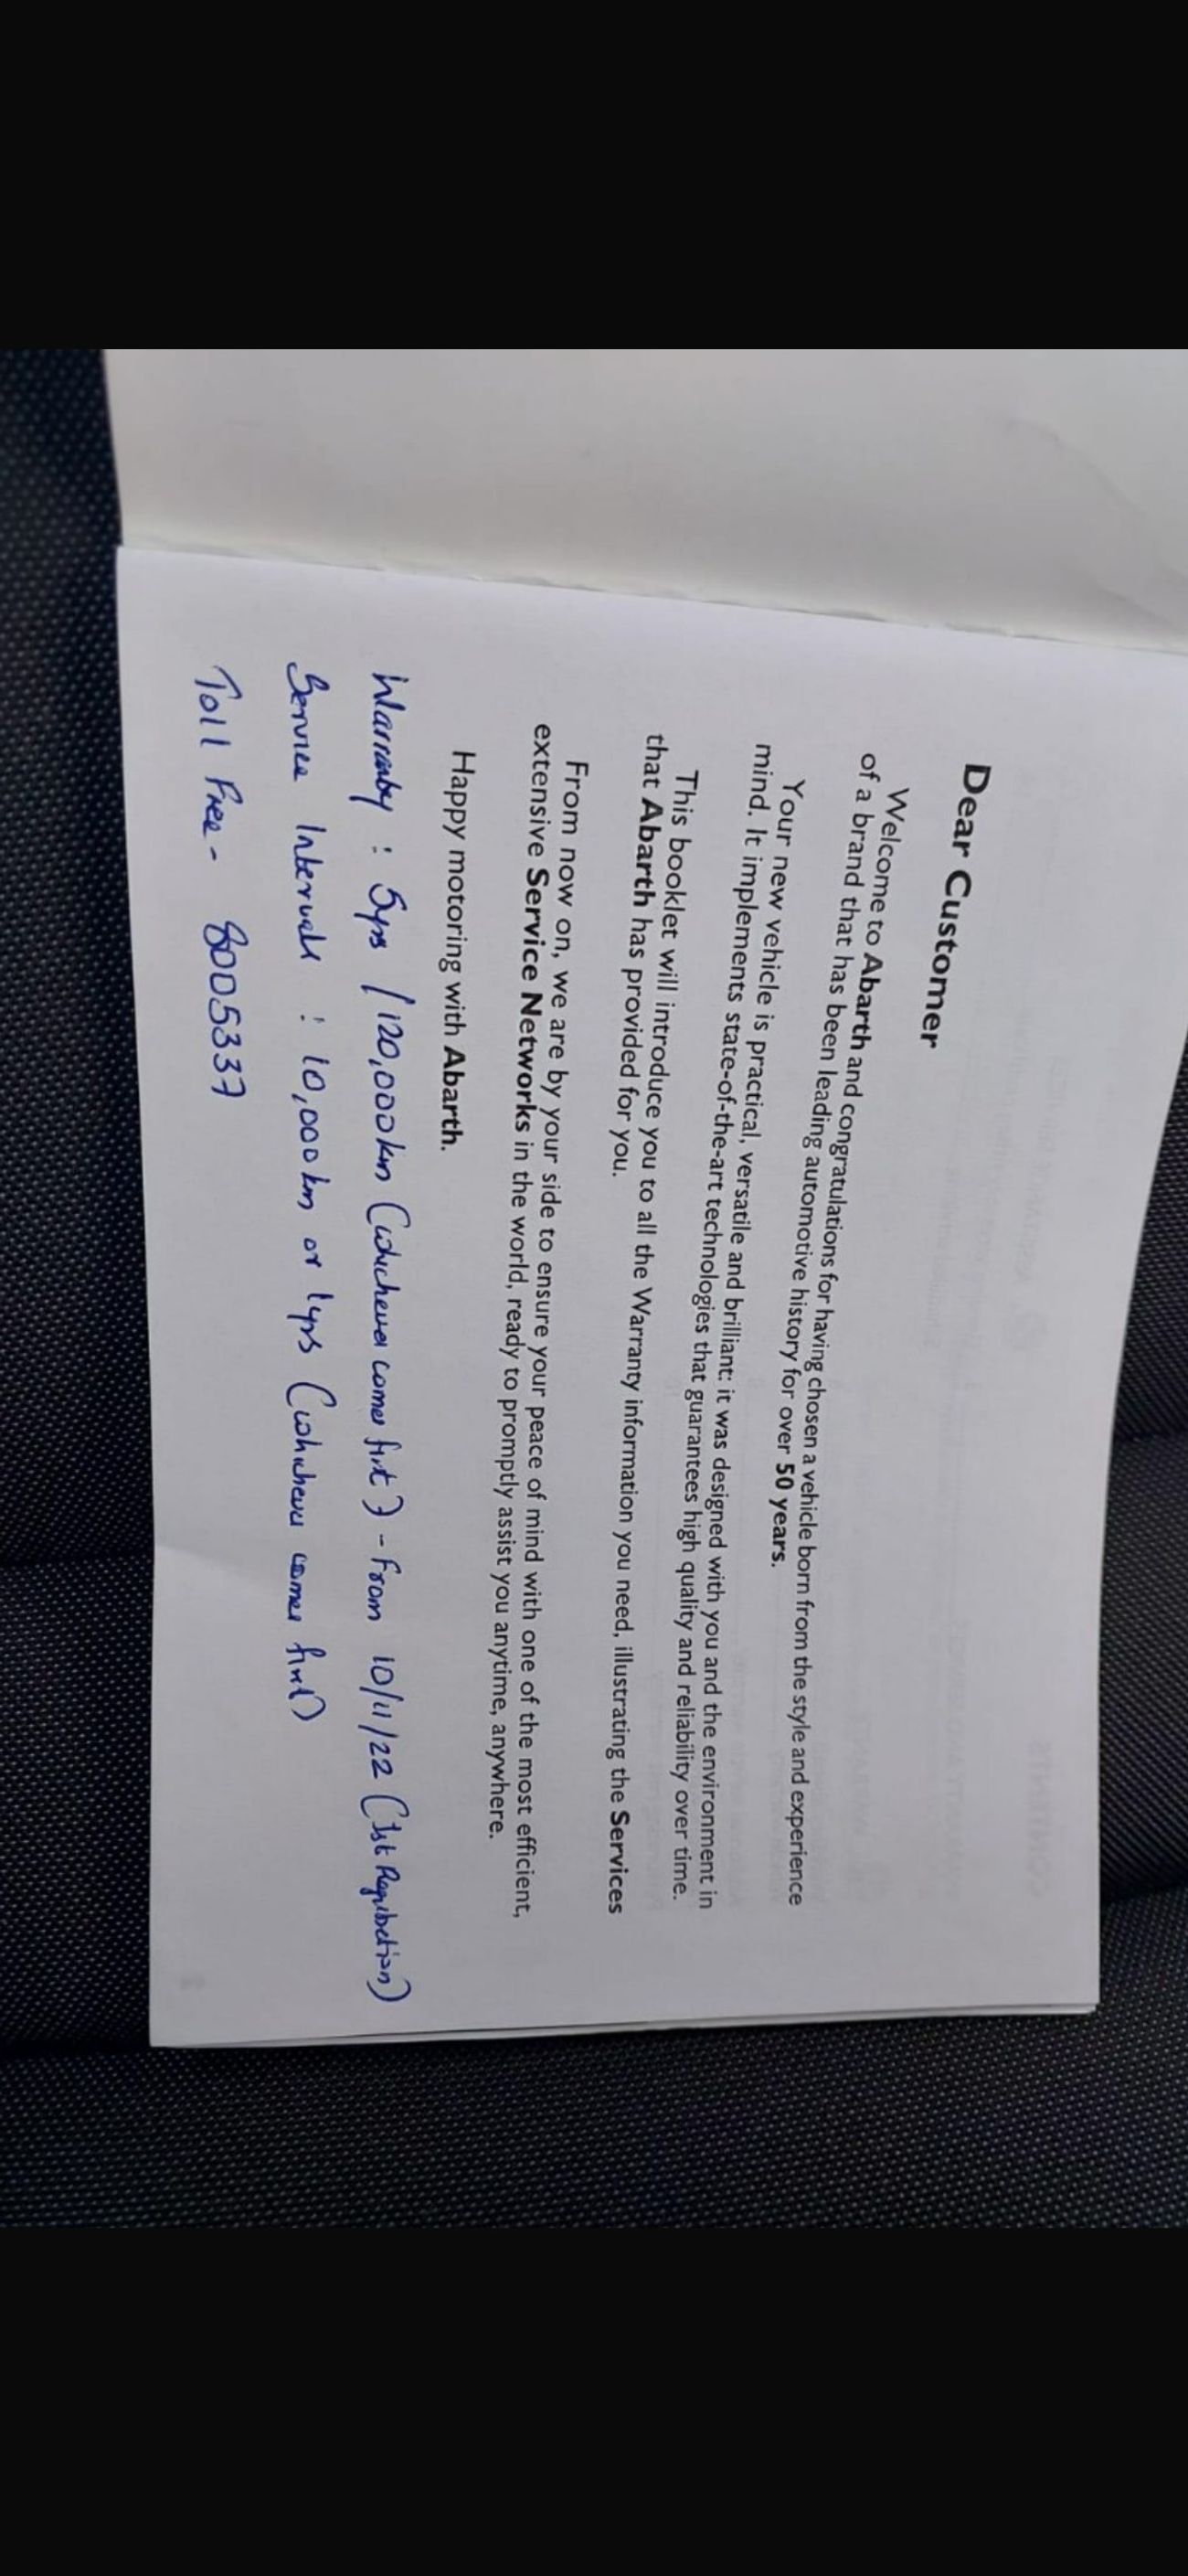 Dear Customer
Welcome to Abarth and congratulations for having chosen a vehicle born from the style and experience
of a brand that has been leading automotive history for over 50 years.
Your new vehicle is practical, versatile and brilliant: it was designed with you and the environment in
mind. It implements state-of-the-art technologies that guarantees high quality and reliability over time.
This booklet will introduce you to all the Warranty information you need, illustrating the Services
that Abarth has provided for you.
From now on, we are by your side to ensure your peace of mind with one of the most efficient,
extensive Service Networks in the world, ready to promptly assist you anytime, anywhere.
Happy motoring with Abarth.
Warranty : 5yrs / 120,000km (whichever comes first) - From 10/11/22 (1st Registration)
Service Intervals : 10,000km or 1yrs (whichever comes first)
Toll Free - 8005337